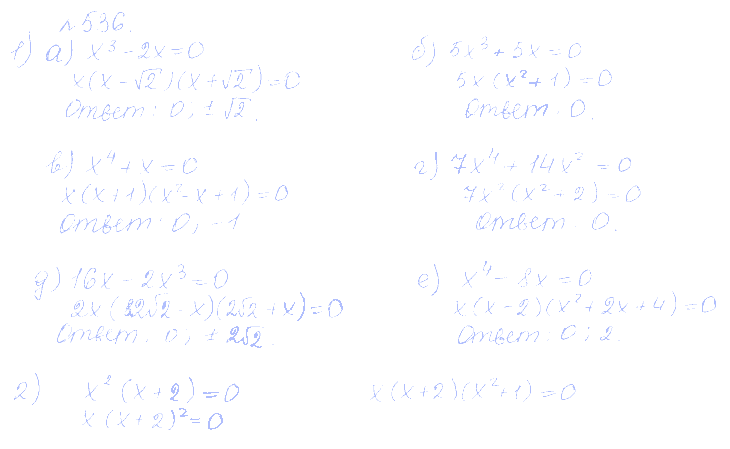 №536.
1) а) x³ - 2x = 0
x(x - √2)(x + √2) = 0
Ответ: 0, ± √2.
б) 5x³ + 5x = 0
5x(x² + 1) = 0
Ответ: 0.
в) x⁴ + x = 0
x(x+1)(x² - x + 1) = 0
Ответ: 0, -1
г) 7x⁴ + 14x² = 0
7x²(x² + 2) = 0
Ответ: 0.
д) 16x - 2x³ = 0
2x(2√2 - x)(2√2 + x) = 0
Ответ: 0, ± 2√2.
е) x⁴ - 8x = 0
x(x - 2)(x² + 2x + 4) = 0
Ответ: 0; 2.
2) x²(x + 2) = 0
x(x+2)² = 0
x(x+2)(x²+1) = 0